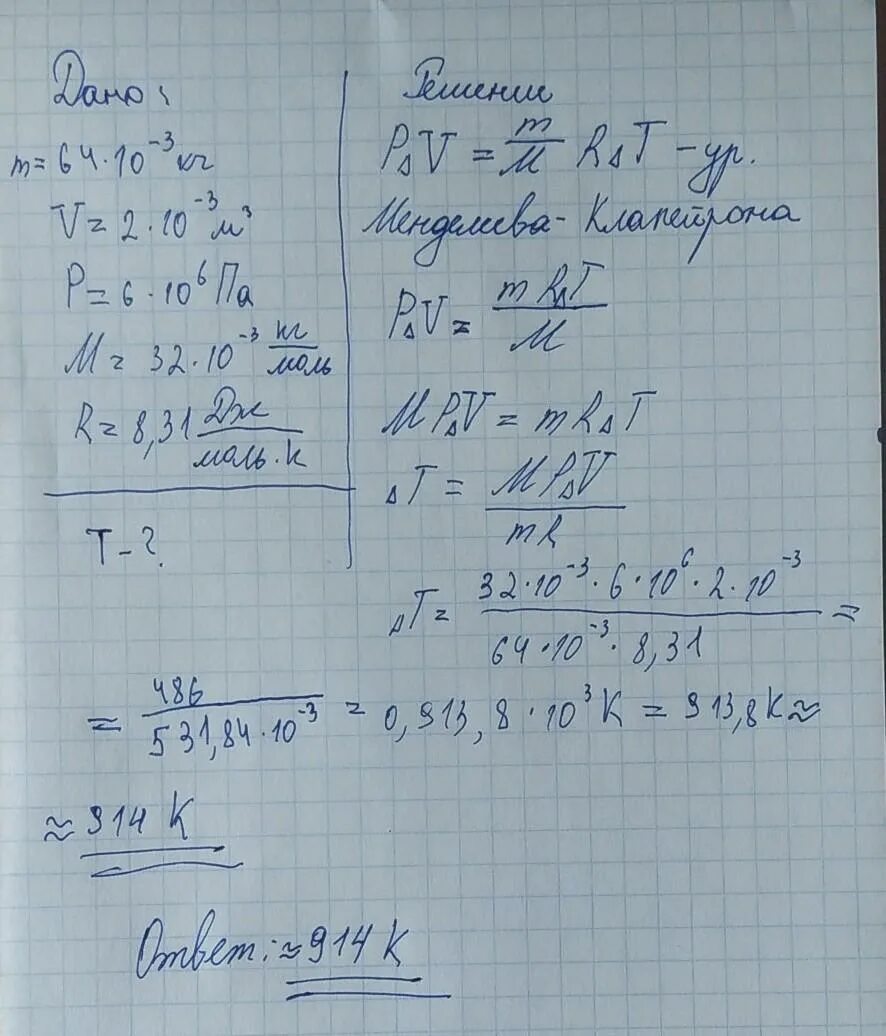 Дано:
m = 64·10⁻³ кг
V = 2·10⁻³ м³
P = 6·10⁶ Па
M = 32·10⁻³ кг/моль
R = 8,31 Дж/моль·К
T - ?
Решение
P∆V = m/M R∆T - ур.
Менделеева - Клапейрона
P∆V = mR∆T/M
MP∆V = mR∆T
∆T = MP∆V/mR
∆T = 32·10⁻³·6·10⁶·2·10⁻³/64·10⁻³·8,31 =
= 486/531,84·10⁻³ = 0,913,8·10³ К = 913,8 К ≈
≈ 914 К
Ответ: ≈ 914 К